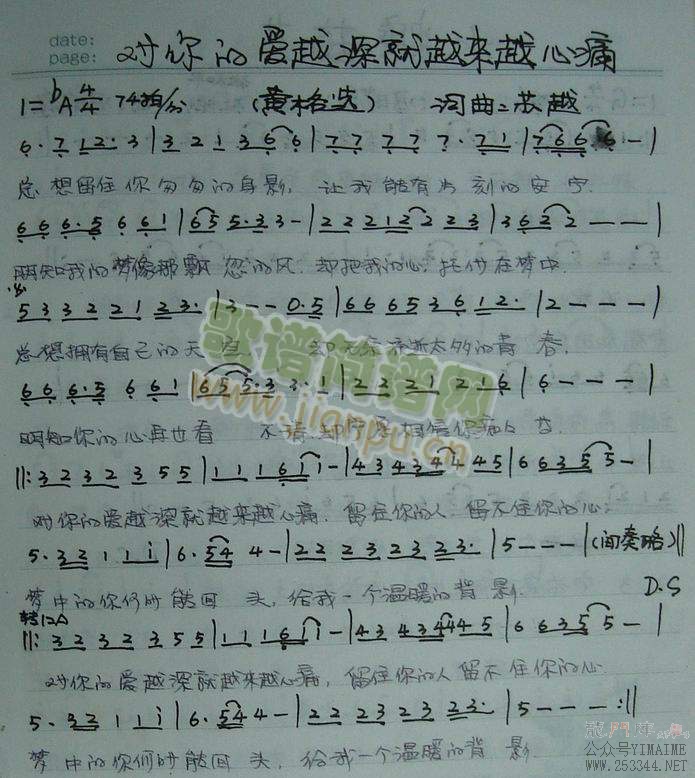 date:
page:
对你的爱越深就越来越心痛
1=ᵇA 4/4 74拍/分 (黄格选) 词曲:苏越
6· 7 1 2· 3 | 3 2 1 3 6 6 | 7 7 7 7 7· 7 1 | 7 6 6 6 — |
总想留住你匆匆的身影, 让我能有片刻的安宁.
6 6 6·5 6 6 1 | 6 5 5·3 3 — | 2 2 2 1 2 2 2 3 | 3 6 2 2 — — — |
明知我的梦像那飘忽的风, 却把我的心托付在梦中.
5 3 3 2 2 1 2 3· | 3 — — 0·5 | 6 6 6 5 3 6 1 2· | 2 — — — |
总想拥有自己的天空. 太多的青春,
6 6 6·5 6 6 1 | 6 5 5·3 3 3·1 | 2 2 2 1 2 1 6 | 6 — — — |
明知你的心再也看不清, 却宁愿相信你
||: 3 2 3 2 3 5 5 | 1 1 1 6 1 1 — | 4 3 4 3 4 4 4 5 | 6 6 3 5 5 — |
对你的爱越深就越来越心痛, 留住你的人, 留不住你的心;
5· 3 2 1 1 i | 6· 5 4 4 — | 2 2 2 3 2 3 2 3· | 5 — — — | (间奏略) ||
梦中的你何时能回头, 给我一个温暖的背影. D.S
转1=A
||: 3 2 3 2 3 5 5 | 1 1 1 6 1 1 — | 4 3 4 3 4 4 4 5 | 6 6 3 5 5 — |
对你的爱越深就越来越心痛, 留住你的人留不住你的心
5· 3 2 1 1 i | 6· 5 4 4 — | 2 2 2 3 2 3 2 3· | 5 — — — :||
梦中的你何时能回头, 给我一个温暖的背影.
歌谱简谱网
www.jianpu.cn
公众号YIMAIME
www.253344.net